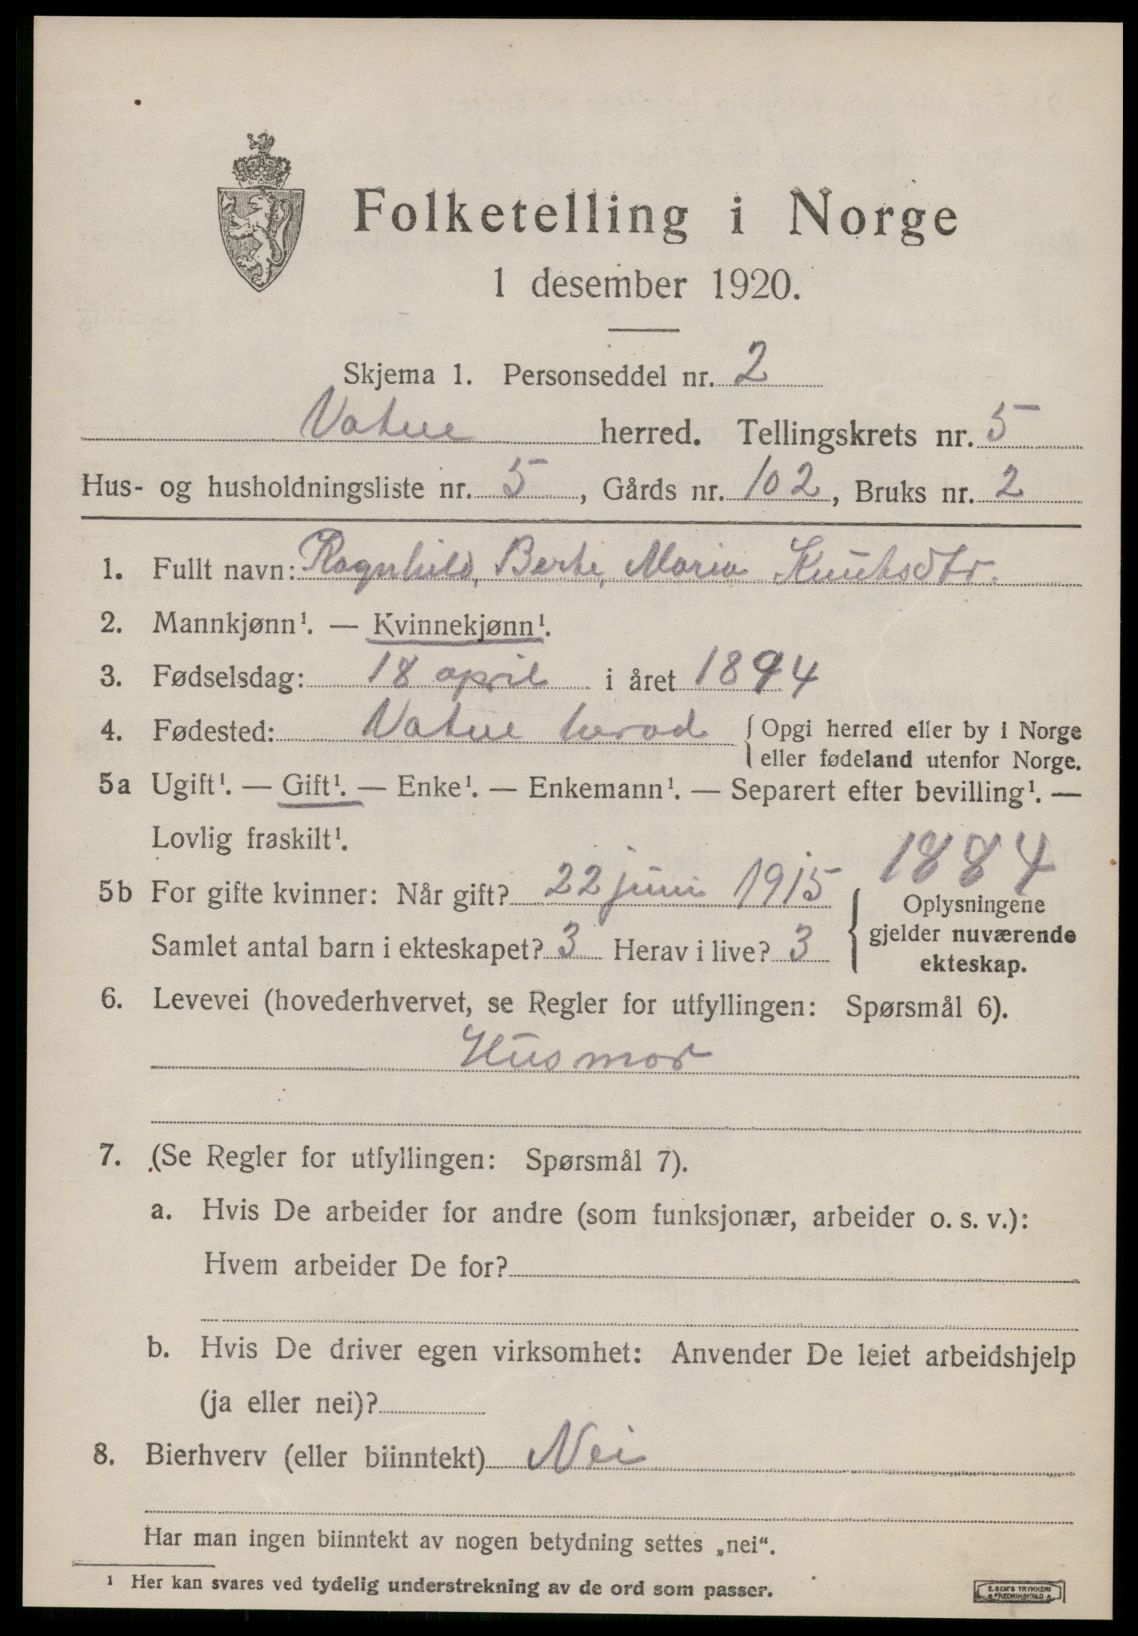 Folketelling i Norge
1 desember 1920.
Skjema 1. Personseddel nr. 2
Vatne herred. Tellingskrets nr. 5
Hus- og husholdningsliste nr. 5, Gårds nr. 102, Bruks nr. 2
1. Fullt navn: Ragnhild, Berte, Maria Knutsdtr.
2. Mannkjønn¹. — Kvinnekjønn¹.
3. Fødselsdag: 18 april i året 1894
4. Fødested: Vatne herad { Opgi herred eller by i Norge
eller fødeland utenfor Norge.
5a Ugift¹. — Gift¹. — Enke¹. — Enkemann¹. — Separert efter bevilling¹. —
Lovlig fraskilt¹.
1884
5b For gifte kvinner: Når gift? 22 juni 1915 { Oplysningene
Samlet antal barn i ekteskapet? 3 Herav i live? 3 gjelder nuværende
ekteskap.
6. Levevei (hovederhvervet, se Regler for utfyllingen: Spørsmål 6).
Husmor
7. (Se Regler for utfyllingen: Spørsmål 7).
a. Hvis De arbeider for andre (som funksjonær, arbeider o. s. v.):
Hvem arbeider De for?
b. Hvis De driver egen virksomhet: Anvender De leiet arbeidshjelp
(ja eller nei)?
8. Bierhverv (eller biinntekt) Nei
Har man ingen biinntekt av nogen betydning settes „nei“.
¹ Her kan svares ved tydelig understrekning av de ord som passer.
E. SEM'S TRYKKERI
FREDRIKSHALD